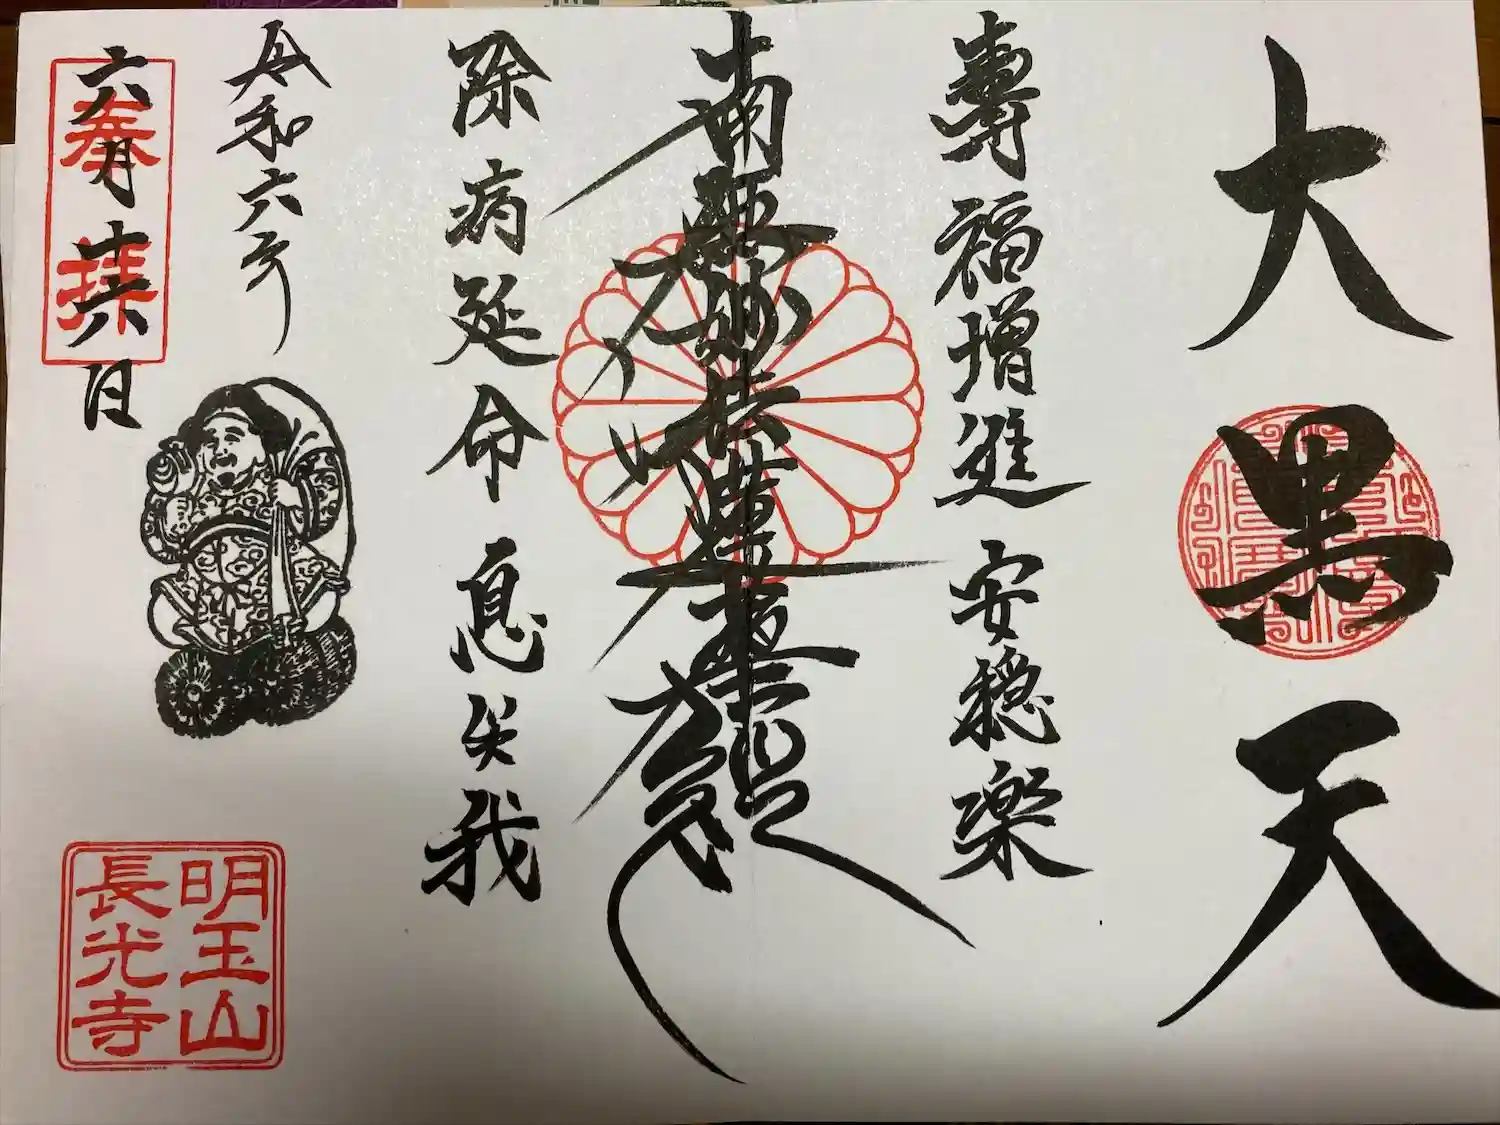 大黒天
壽福増進 安穏楽
南無妙法蓮華經
除病延命 息失我
令和六年
六月十六日
奉拝
明玉山
長光寺